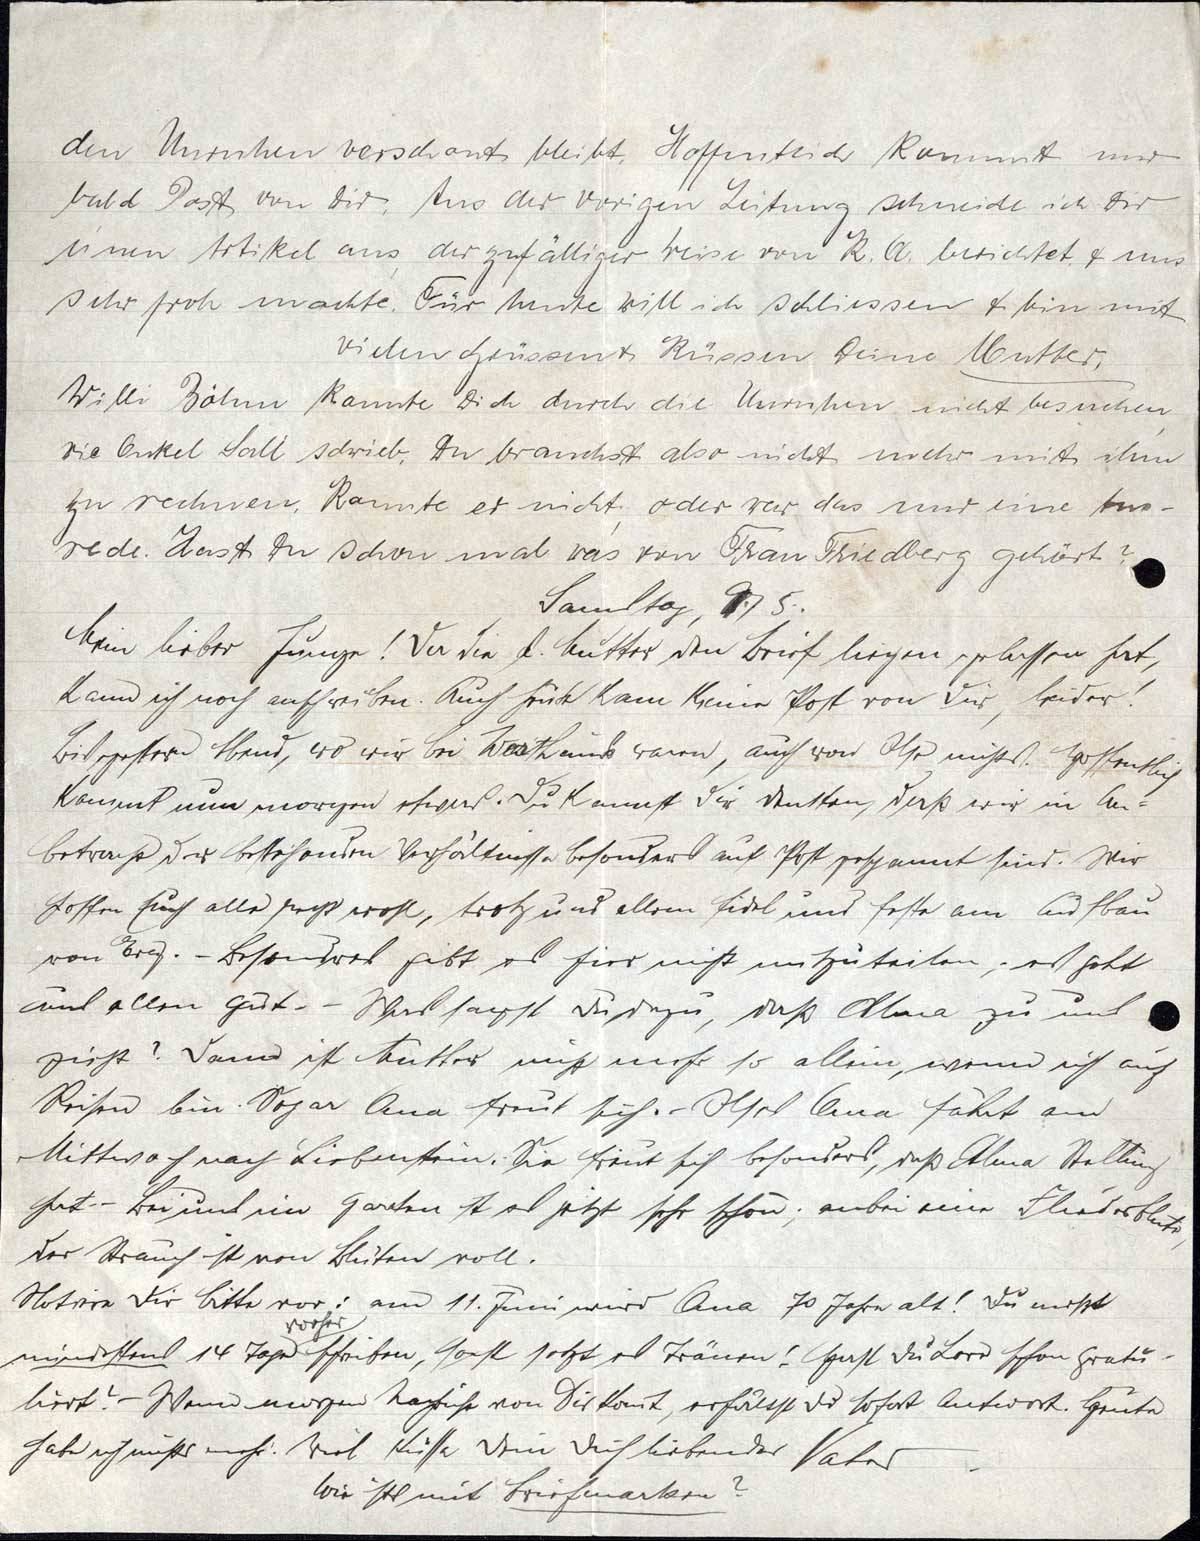 den Unruhen verschont bleibt. Hoffentlich kommt nur
bald Post von Dir. Aus der vorigen Zeitung schneide ich Dir
einen Artikel aus, der zufälliger Weise von K. A. berichtet & uns
sehr froh machte. Für heute will ich schliessen & bin mit
vielen Grüssen & Küssen Deine Mutter.
Willi Böhm konnte Dich durch die Unruhen nicht besuchen,
wie Onkel Salli schrieb. Du brauchst also nicht mehr mit ihm
zu rechnen. Konnte er nicht, oder war das nur eine Aus-
rede. Hast Du schon mal was von Frau Friedberg gehört?
Samstag, 9./5.
Mein lieber Junge! Da die l. Mutter den Brief liegen gelassen hat,
kann ich noch anschreiben. Auch heute kam keine Post von Dir, leider!
Bis gestern Abend, wo wir bei waren, auch von Ilse nichts. Hoffentlich
kommt nun morgen etwas. Du kannst Dir denken, daß wir in An-
betracht der bestehenden Verhältnisse besonders auf Post gespannt sind. Wir
hoffen Euch alle recht wohl, trotz und allem fidel und feste am Aufbau
von Erez. – Besonderes gibt es hier nicht mitzuteilen, es geht
uns allen gut. – Was sagst Du dazu, daß Alma zu uns
zieht? Dann ist Mutter nicht mehr so allein, wenn ich auf
Reisen bin. Sogar Oma freut sich. – Ilses Oma fährt am
Mittwoch nach Liebenstein. Sie freut sich besonders, daß Alma Stellung
hat. – Bei uns im Garten ist es jetzt sehr schön; anbei eine Fliederblüte,
der Strauch ist von Blüten voll.
Notiere Dir bitte vor: am 11. Juni wird Oma 70 Jahre alt! Du mußt
mindestens 14 Tage vorher schreiben, sonst setzt es Tränen! Hast Du Lore schon gratu-
liert? – Wenn morgen Nachricht von Dir kommt, erhältst Du sofort Antwort. Heute
habe ich nichts mehr. Viel Küsse Dein Dich liebender Vater
Wie ists mit Briefmarken?